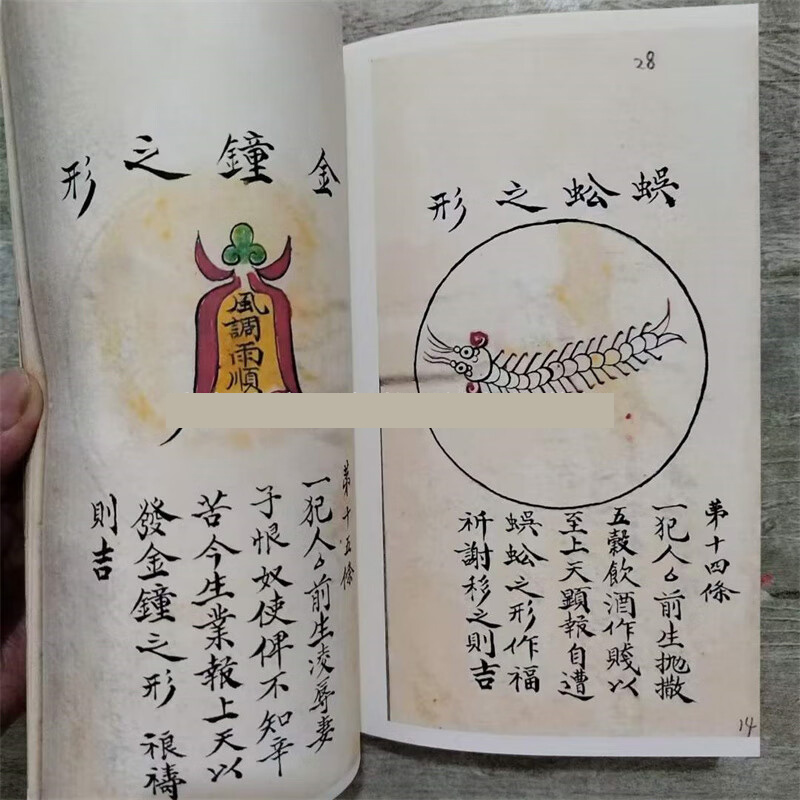 28
蜈蚣之形
第十四條
一犯人厶前生抛撒
五穀飲酒作賤以
至上天顕報自遭
蜈蚣之形作福
祈謝移之則吉
14
金鐘之形
風調雨順
第十五條
一犯人厶前生凌辱妻
子恨奴使俾不知辛
苦今生業報上天以
發金鐘之形 禱
則吉